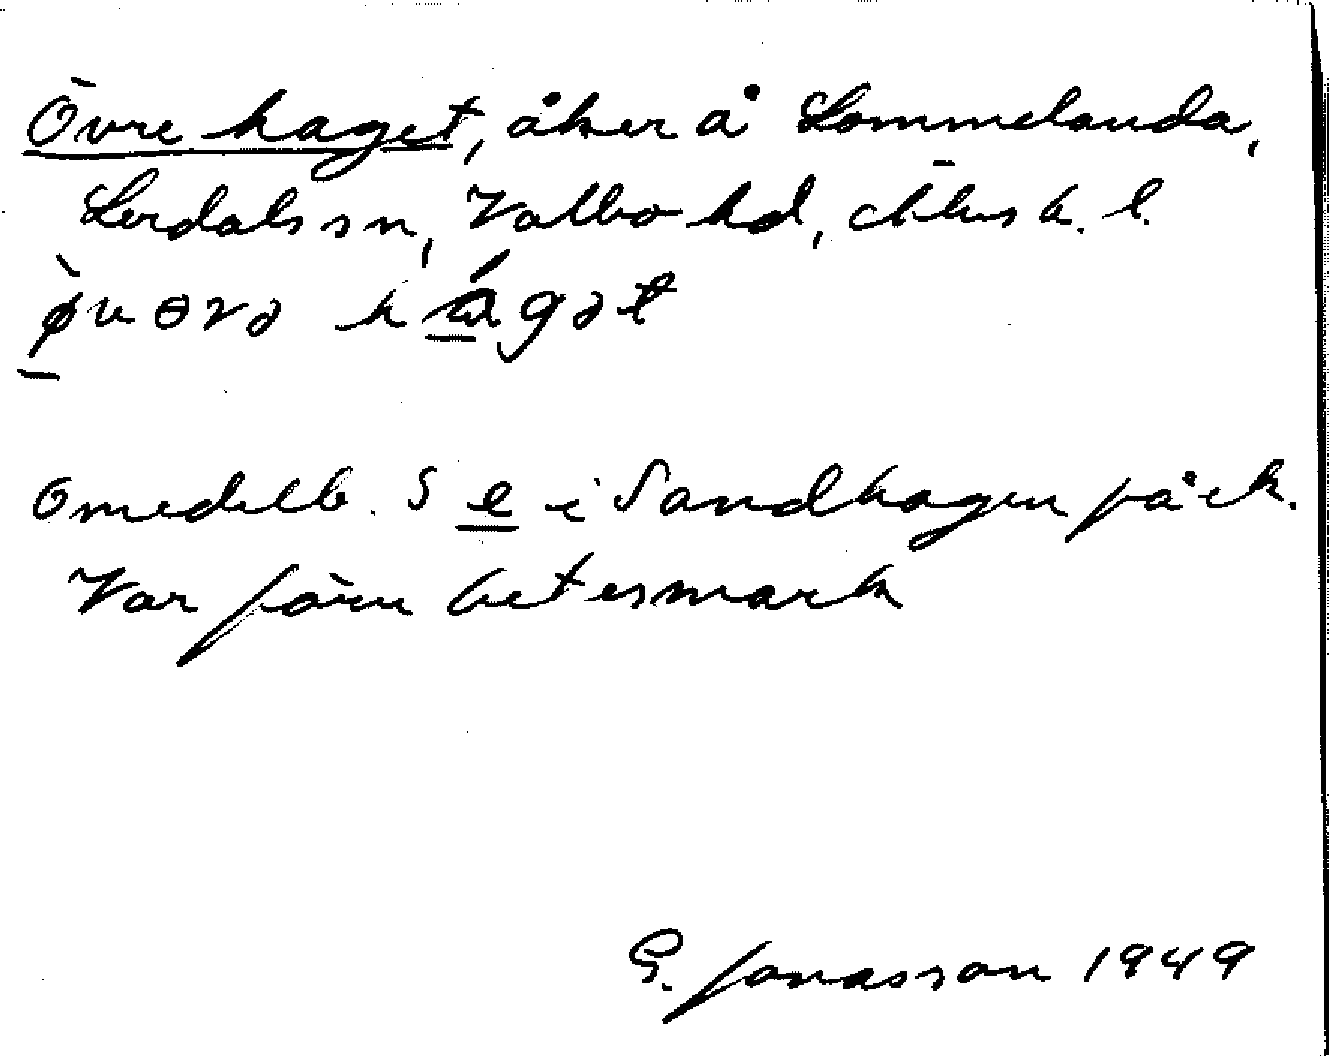 Övre haget, åker å Lommelanda,
Lerdals sn, Valbo hd, Älvsb. l.
ø̀vərə hágət
Omedelb. S e i Sandhagen påck.
Var förn betesmark
G. Jonasson 1949